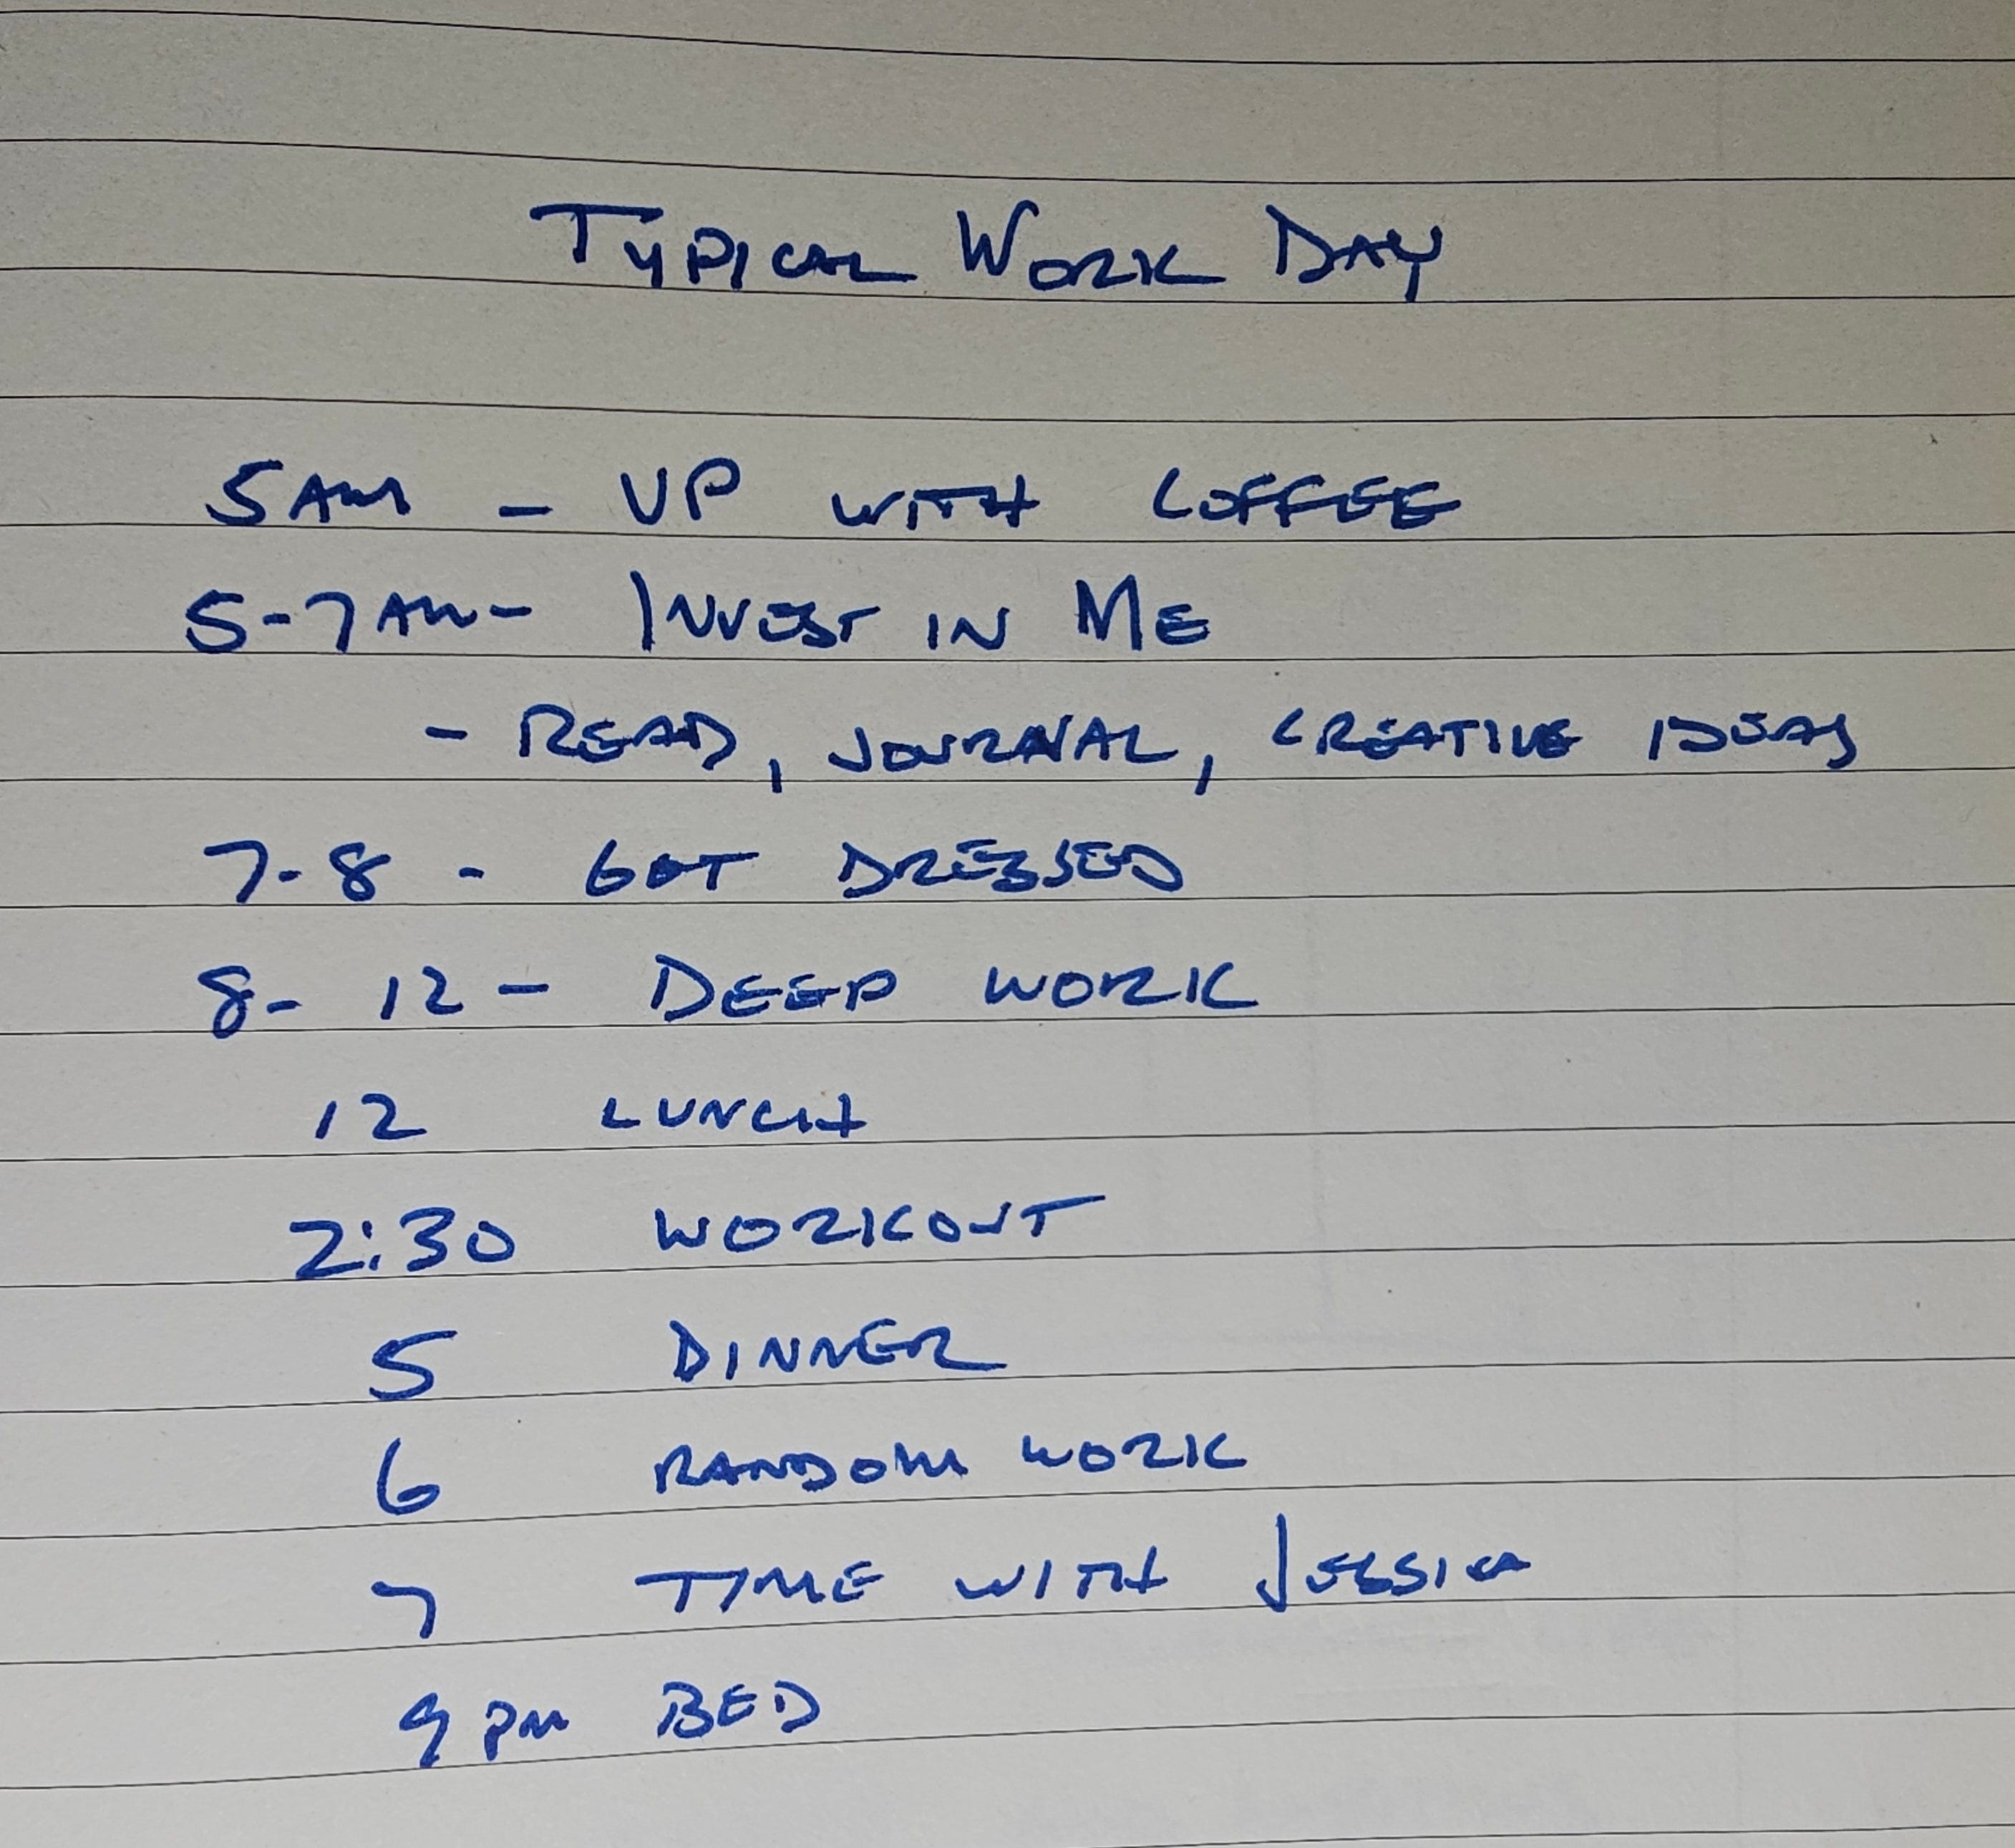 TYPICAL WORK DAY
5 AM - UP WITH COFFEE
5-7 AM - INVEST IN ME
- READ, JOURNAL, CREATIVE IDEAS
7-8 - GOT DRESSED
8- 12 - DEEP WORK
12 LUNCH
2:30 WORKOUT
5 DINNER
6 RANDOM WORK
7 TIME WITH JESSICA
9 PM BED